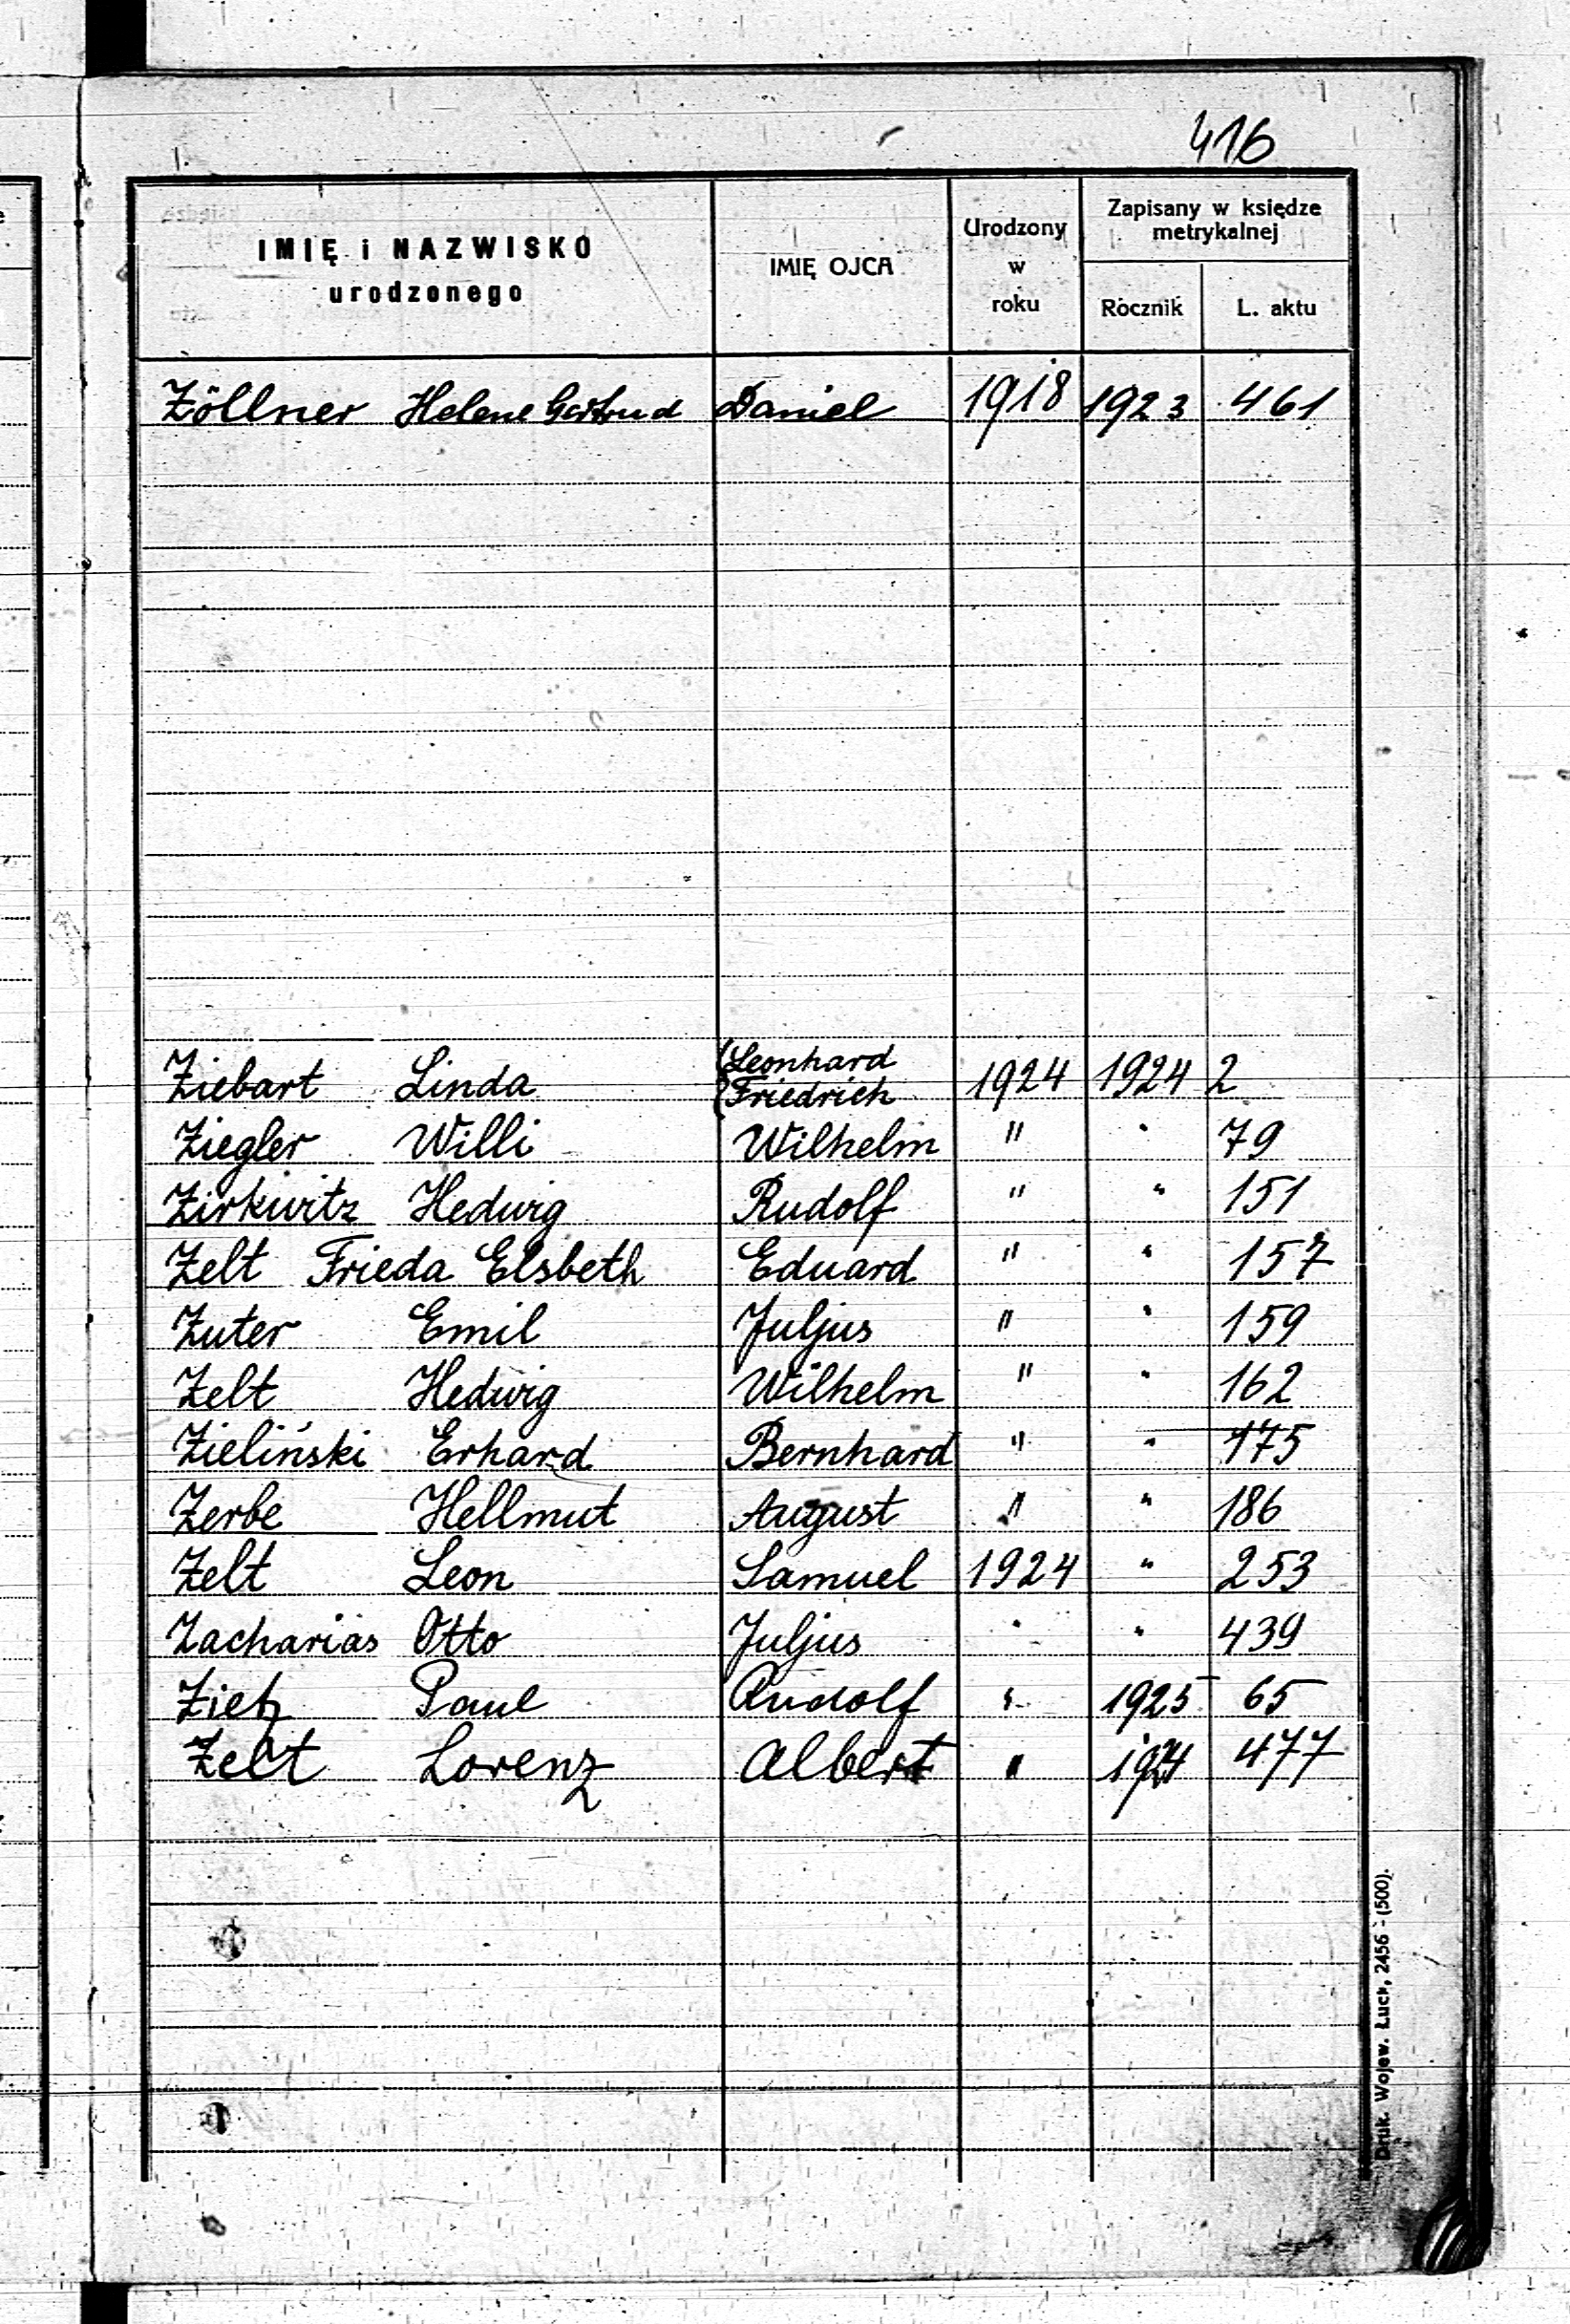 416
IMIĘ i NAZWISKO
urodzonego
IMIĘ OJCA
Urodzony
w
roku
Zapisany w księdze
metrykalnej
Rocznik
L. aktu
Zöllner Helene Gertrud Daniel 1918 1923 461
Ziebart Linda (Leonhard Friedrich 1924 1924 2
Ziegler Willi Wilhelm " " 79
Zirkwitz Hedwig Rudolf " " 151
Zelt Frieda Elsbeth Eduard " " 157
Zuter Emil Juljus " " 159
Zelt Hedwig Wilhelm " " 162
Zieliński Erhard Bernhard " " 175
Zerbe Hellmut August " " 186
Zelt Leon Samuel 1924 " 253
Zacharias Otto Juljus " " 439
Zietz Paul Rudolf " 1925 65
Zelt Lorenz Albert " 1924 477
Druk. Wojew. Łuck, 2456 - (500).